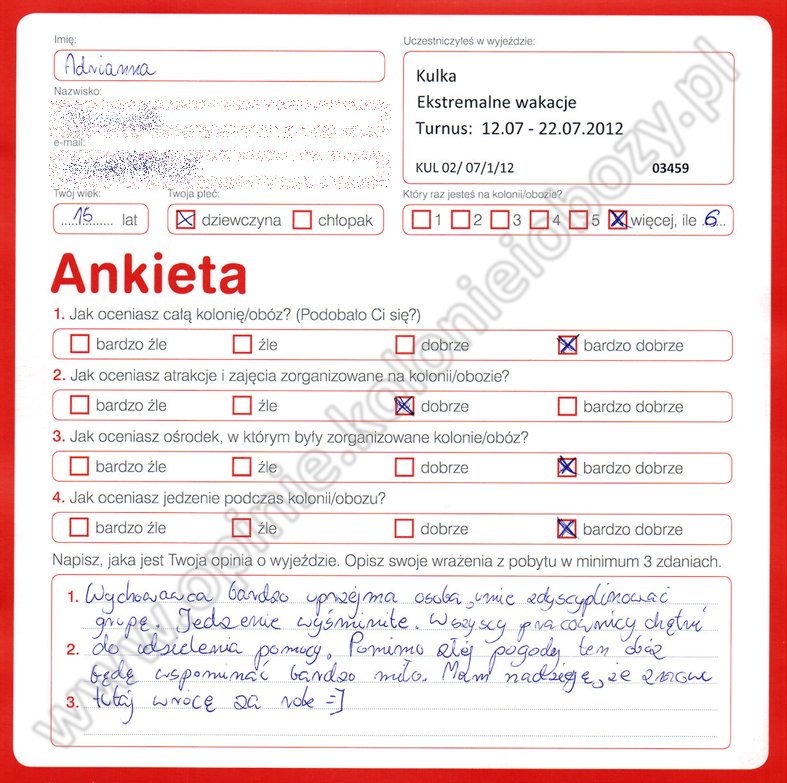 Imię:
Adrianna
Nazwisko:
e-mail:
Twój wiek:
15 lat
Twoja płeć:
dziewczyna chłopak
Uczestniczyłeś w wyjeździe:
Kulka
Ekstremalne wakacje
Turnus: 12.07 - 22.07.2012
KUL 02/ 07/1/12 03459
Który raz jesteś na kolonii/obozie?
1 2 3 4 5 więcej, ile 6
Ankieta
1. Jak oceniasz całą kolonię/obóz? (Podobało Ci się?)
bardzo źle źle dobrze bardzo dobrze
2. Jak oceniasz atrakcje i zajęcia zorganizowane na kolonii/obozie?
bardzo źle źle dobrze bardzo dobrze
3. Jak oceniasz ośrodek, w którym były zorganizowane kolonie/obóz?
bardzo źle źle dobrze bardzo dobrze
4. Jak oceniasz jedzenie podczas kolonii/obozu?
bardzo źle źle dobrze bardzo dobrze
Napisz, jaka jest Twoja opinia o wyjeździe. Opisz swoje wrażenia z pobytu w minimum 3 zdaniach.
1. Wychowawca bardzo uprzejma osoba, umie zdyscyplinować
grupę. Jedzenie wyśminite. Wszyscy pracownicy chętni
2. do udzielenia pomocy. Pomimo złej pogody ten obóz
będę wspominać bardzo miło. Mam nadzieję, że znowu
3. tutaj wrócę za rok =]
www.opinie.kolonieiobozy.pl